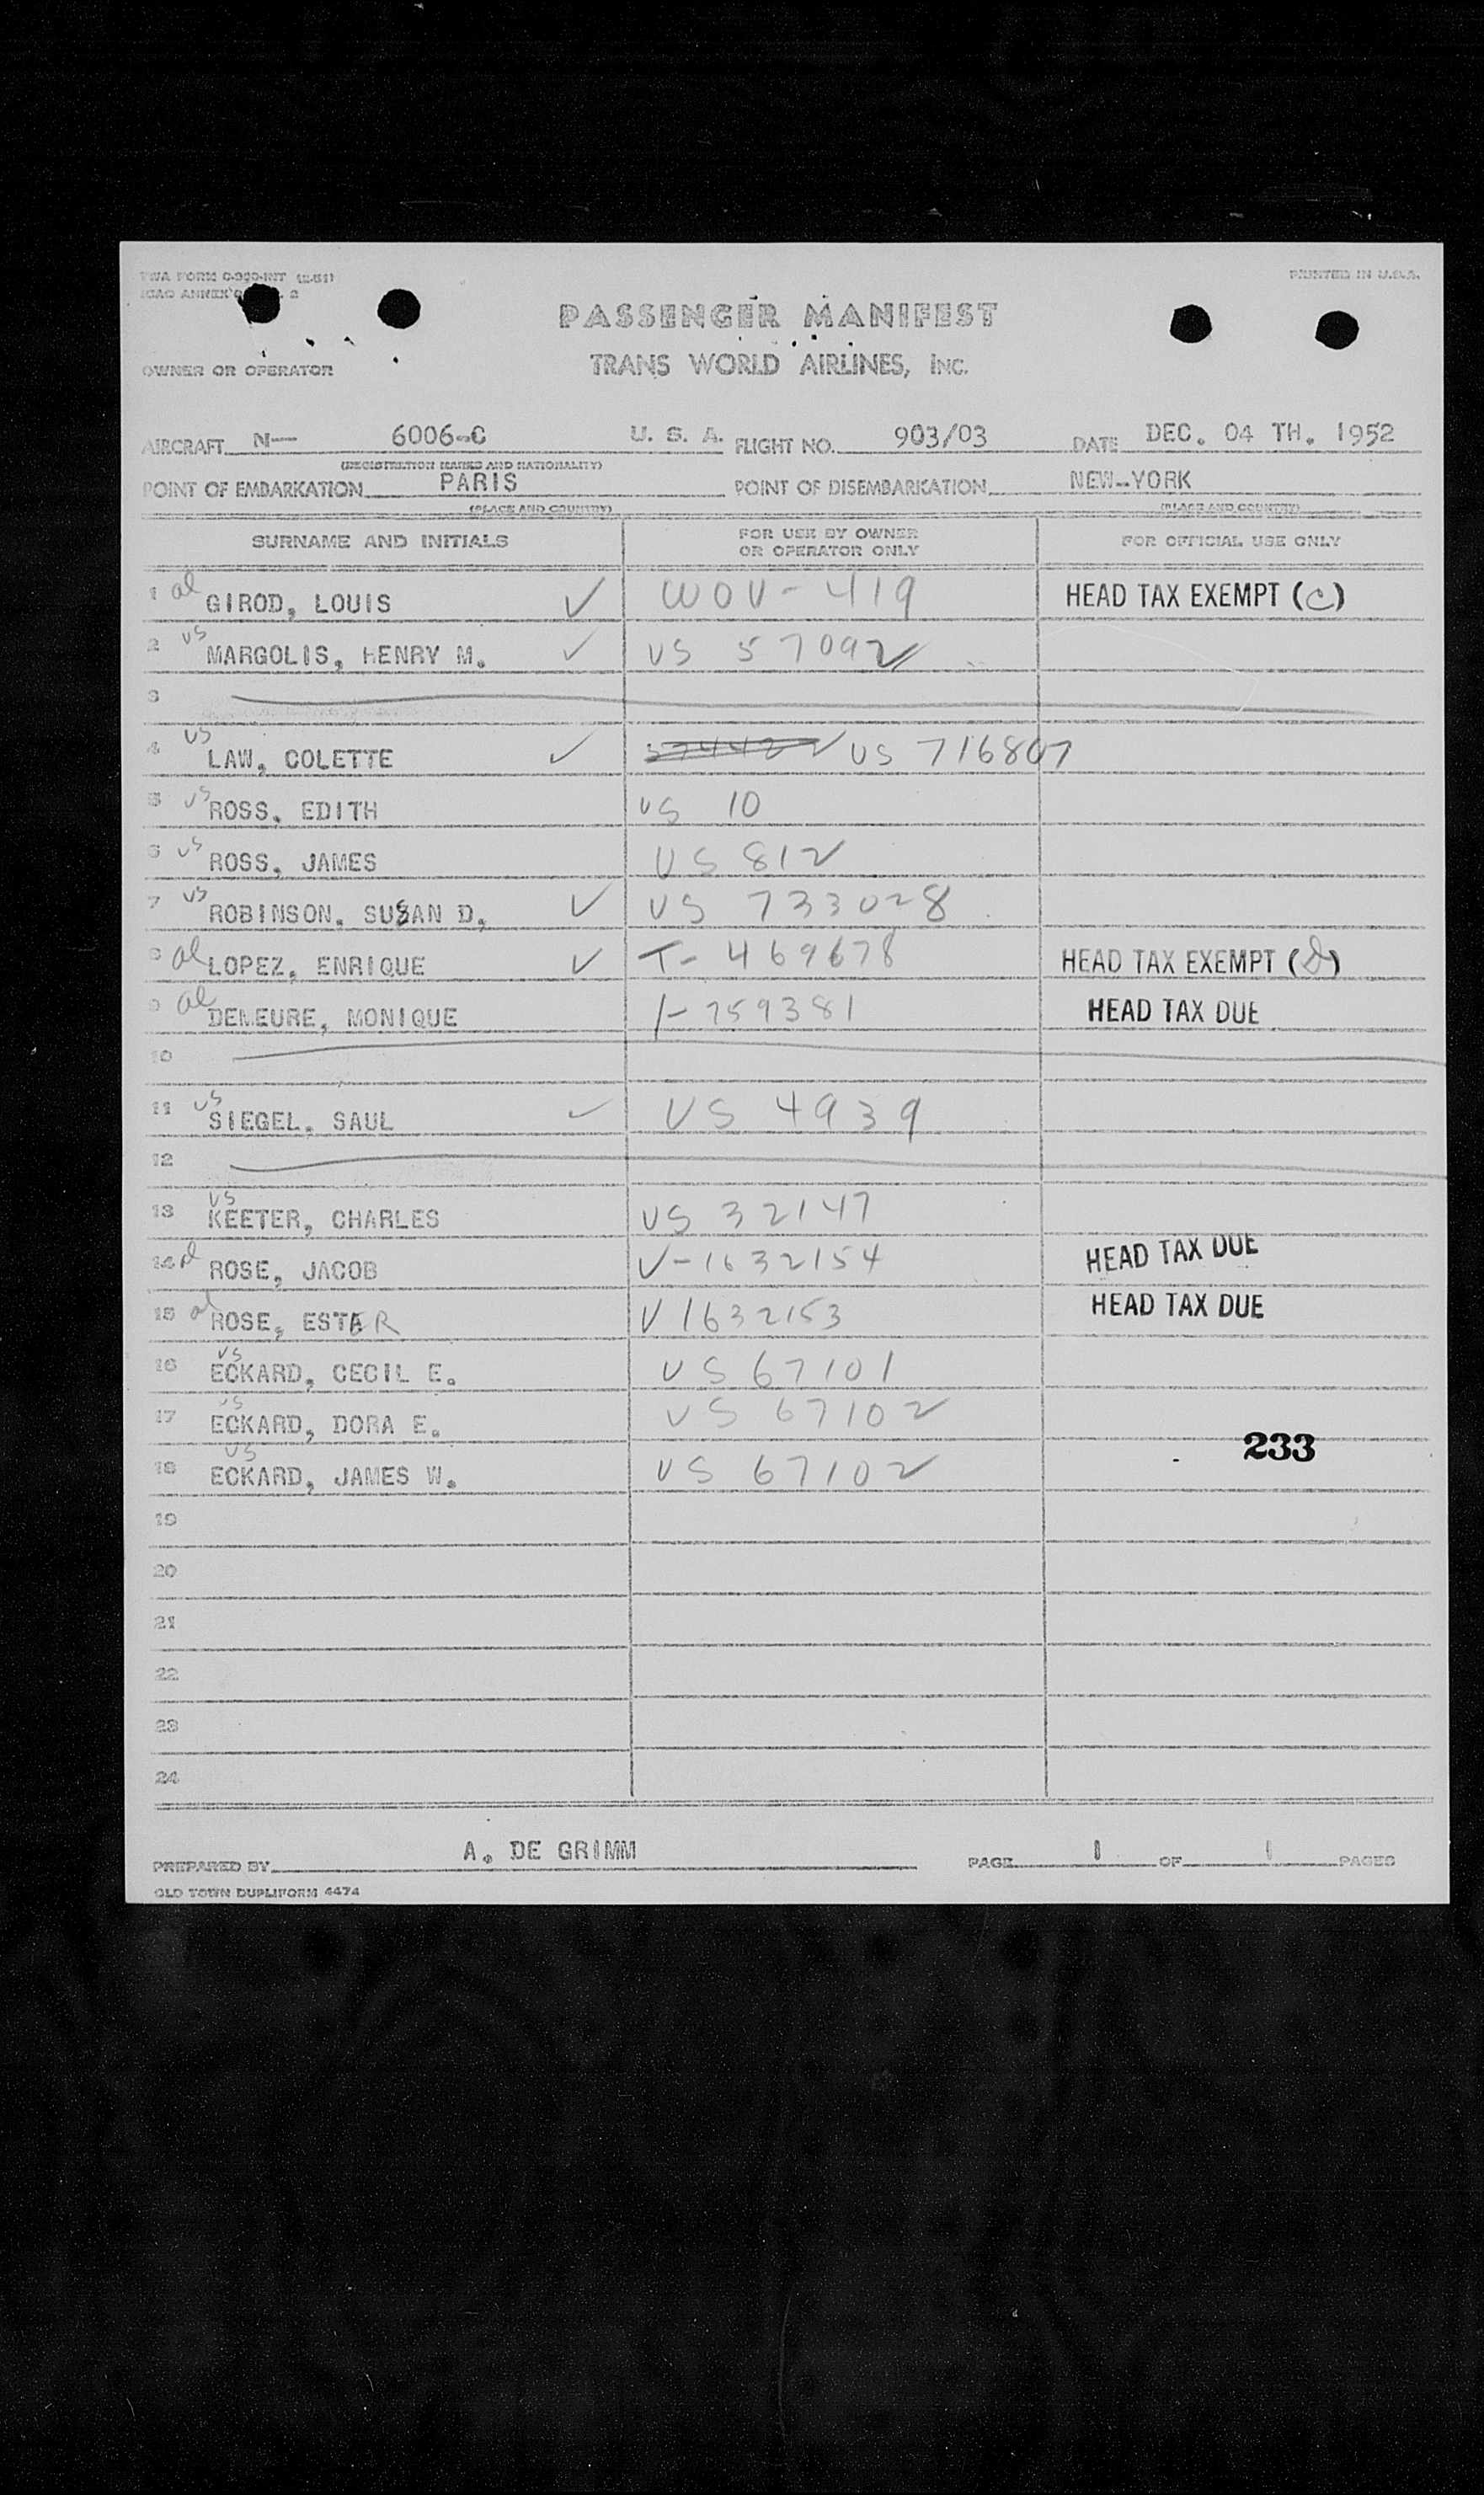 TWA FORM O-390-INT (2-51)
PRINTED IN U.S.A.
ICAO ANNEX 9 2
PASSENGER MANIFEST
OWNER OR OPERATOR TRANS WORLD AIRLINES, INC.
AIRCRAFT N— 6006-C U. S. A. FLIGHT NO. 903/03 DATE DEC. 04 TH. 1952
(REGISTRATION MARKS AND NATIONALITY)
POINT OF EMBARKATION PARIS POINT OF DISEMBARKATION NEW-YORK
(PLACE AND COUNTRY) (PLACE AND COUNTRY)
SURNAME AND INITIALS FOR USE BY OWNER OR OPERATOR ONLY FOR OFFICIAL USE ONLY
1 al GIROD, LOUIS ✓ WOV-419 HEAD TAX EXEMPT (C)
2 US MARGOLIS, HENRY M. ✓ US 57092
3
4 US LAW, COLETTE ✓ US 716807
5 US ROSS, EDITH US 10
6 US ROSS, JAMES US 812
7 US ROBINSON, SUSAN D. ✓ US 733028
8 al LOPEZ, ENRIQUE ✓ T- 469678 HEAD TAX EXEMPT (D)
9 al DEMEURE, MONIQUE I-759381 HEAD TAX DUE
10
11 US SIEGEL, SAUL ✓ US 4939
12
13 US KEETER, CHARLES US 32147
14 al ROSE, JACOB V-1632154 HEAD TAX DUE
15 al ROSE, ESTER V 1632153 HEAD TAX DUE
16 US ECKARD, CECIL E. US 67101
17 US ECKARD, DORA E. US 67102
18 US ECKARD, JAMES W. US 67102
233
19
20
21
22
23
24
PREPARED BY A. DE GRIMM PAGE 1 OF 1 PAGES
OLD TOWN DUPLIFORM 4474